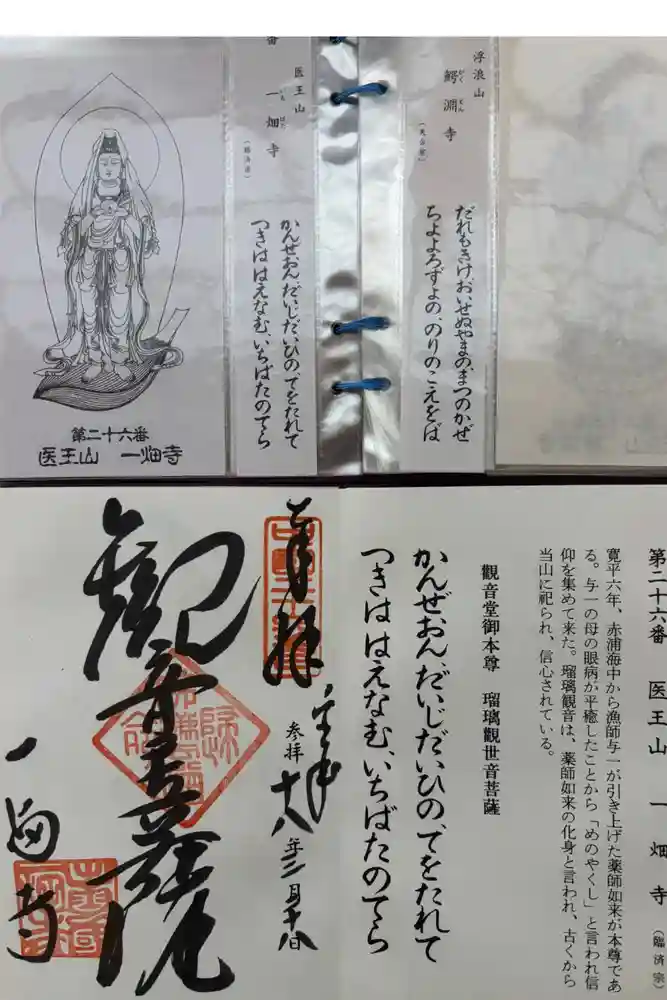 浮浪山
鰐淵寺
がくえん
(天台宗)
だれもきけ、おいせぬやまの、まつのかぜ
ちよよろずよの、のりのこえをば
番 医王山
一畑寺
いちばた
(臨済宗)
かんぜおん、だいじだいひの、てをたれて
つきははえなむ、いちばたのてら
第二十六番
医王山 一畑寺
第二十六番 医王山 一畑寺 (臨済宗)
寛平六年、赤浦海中から漁師与一が引き上げた薬師如来が本尊であ
る。与一の母の眼病が平癒したことから「めのやくし」と言われ信
仰を集めて来た。瑠璃観音は、薬師如来の化身と言われ、古くから
当山に祀られ、信心されている。
観音堂御本尊 瑠璃觀世音菩薩
かんぜおん、だいじだいひの、てをたれて
つきははえなむ、いちばたのてら
奉拝
参拝 十八年三月十八日
觀音菩薩
一畑寺